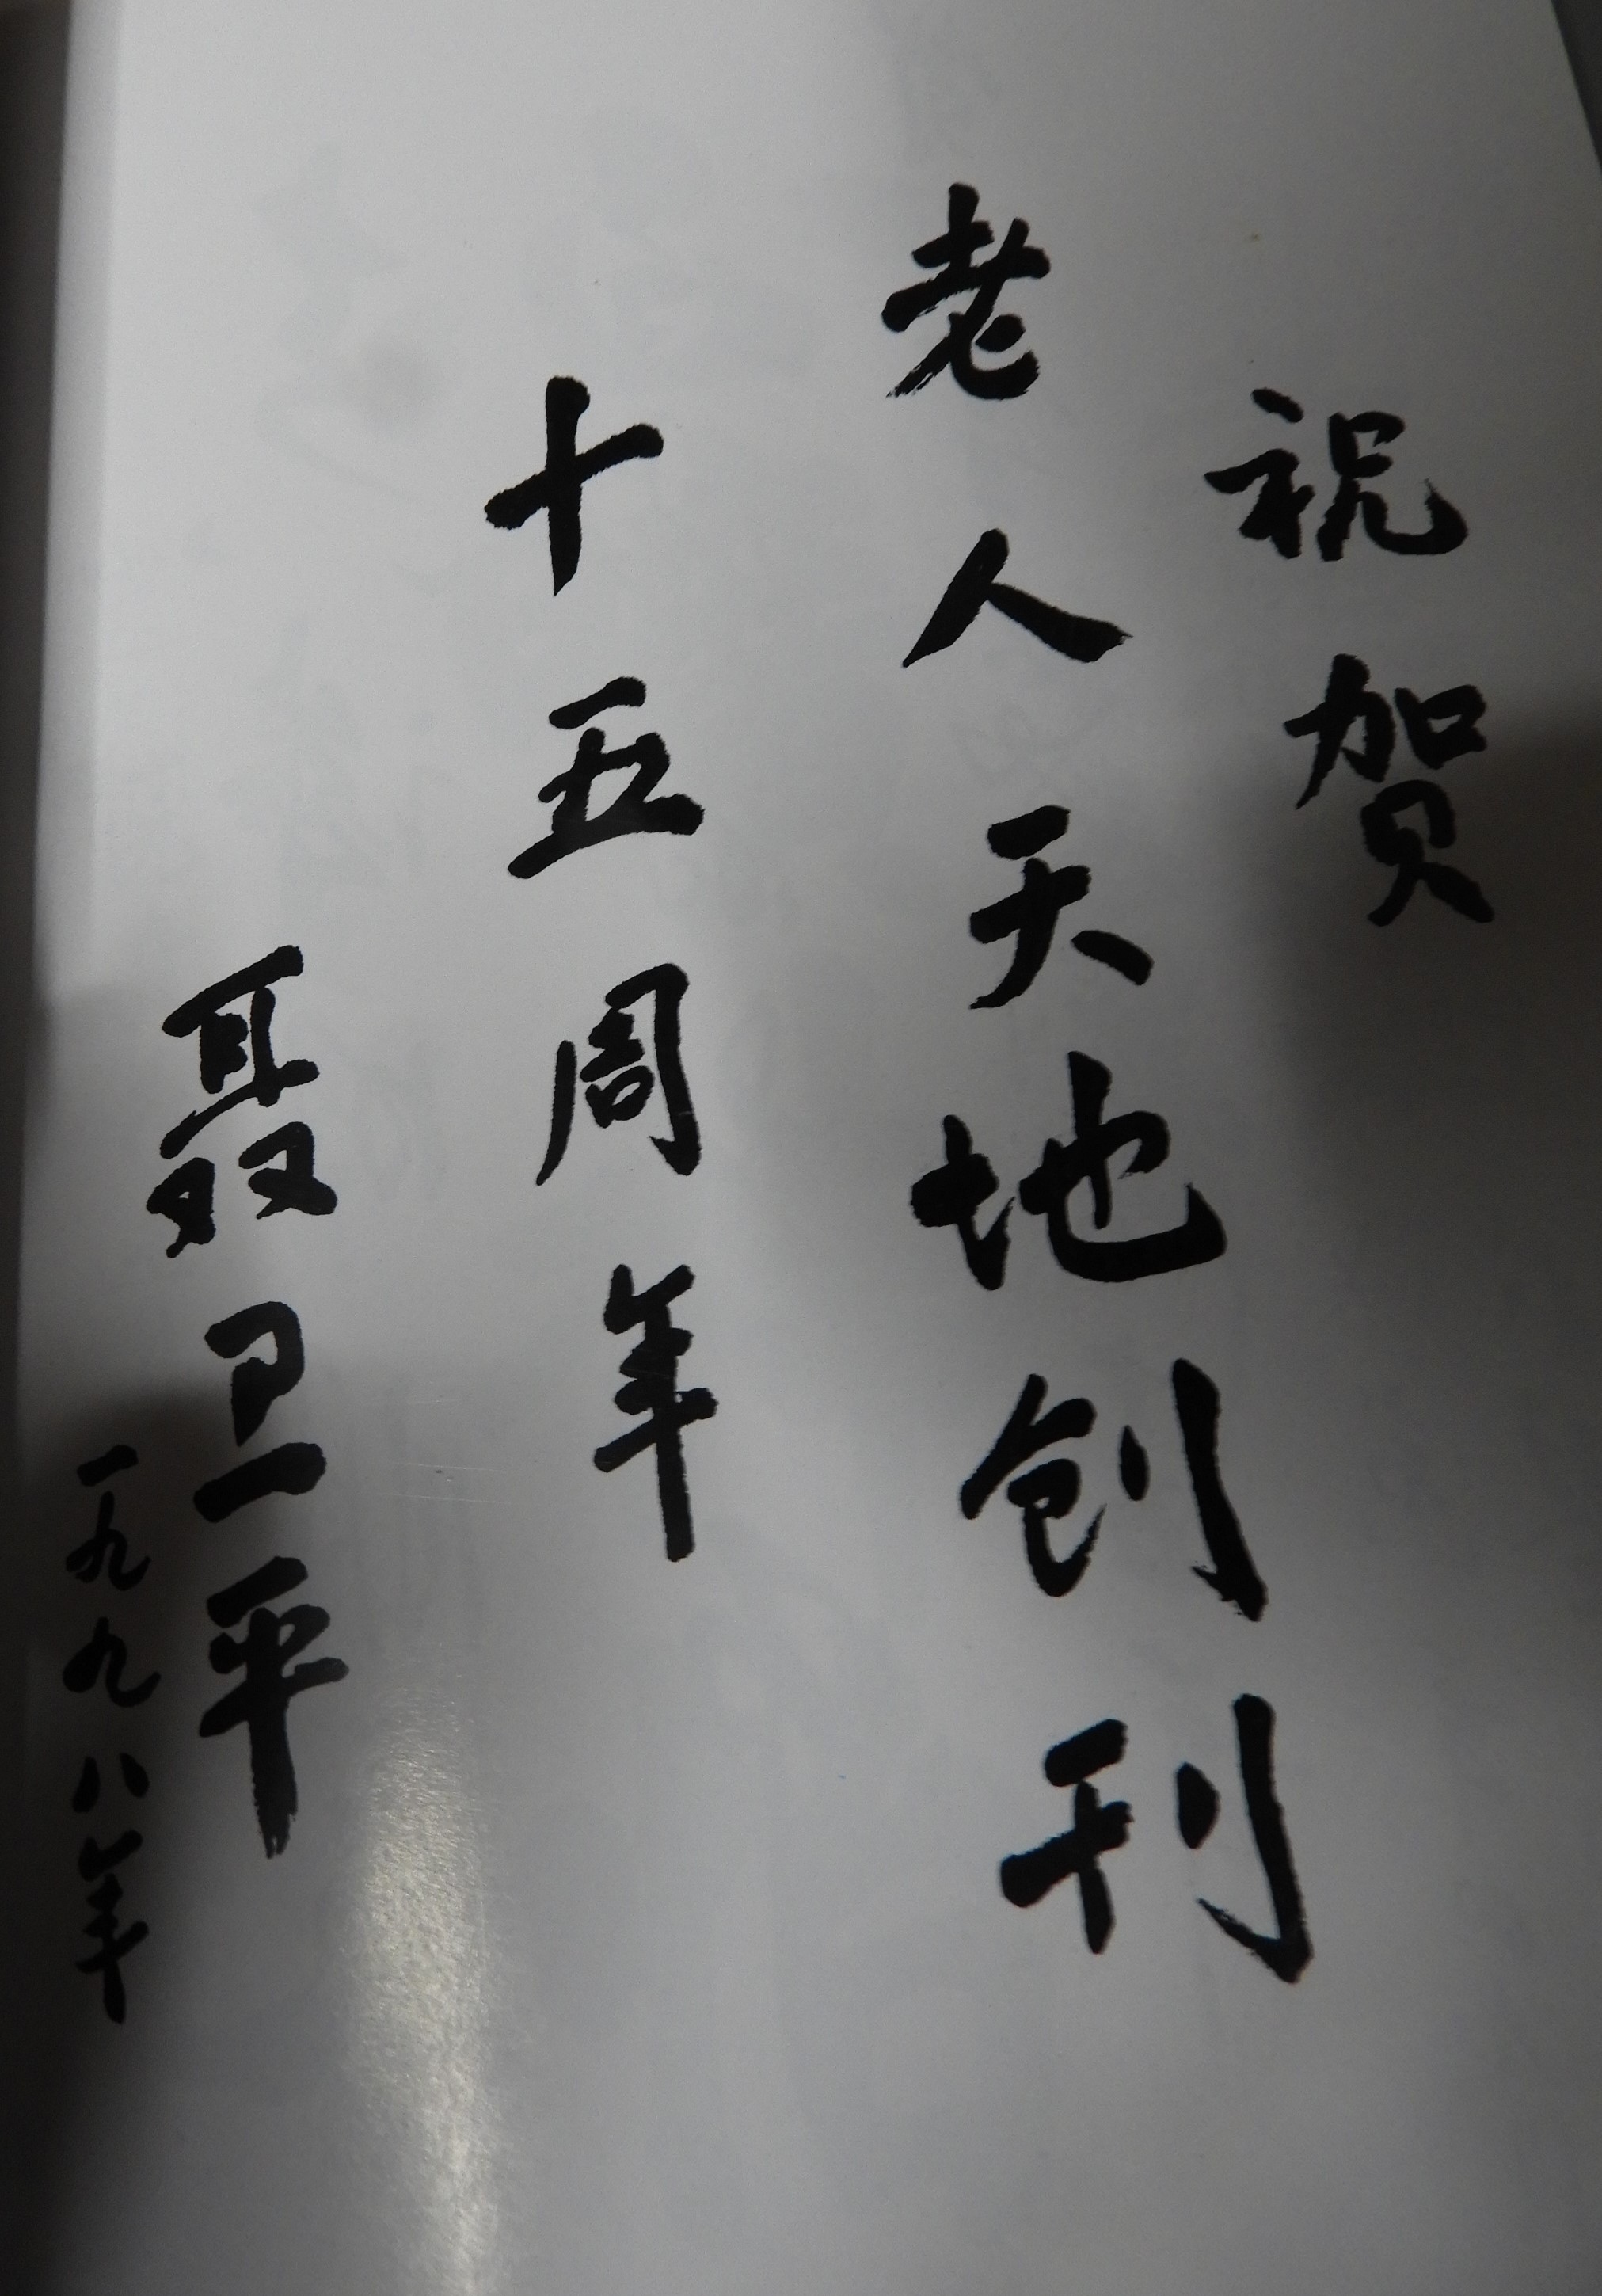 祝贺
老人天地创刊
十五周年
聂卫平
一九九八年